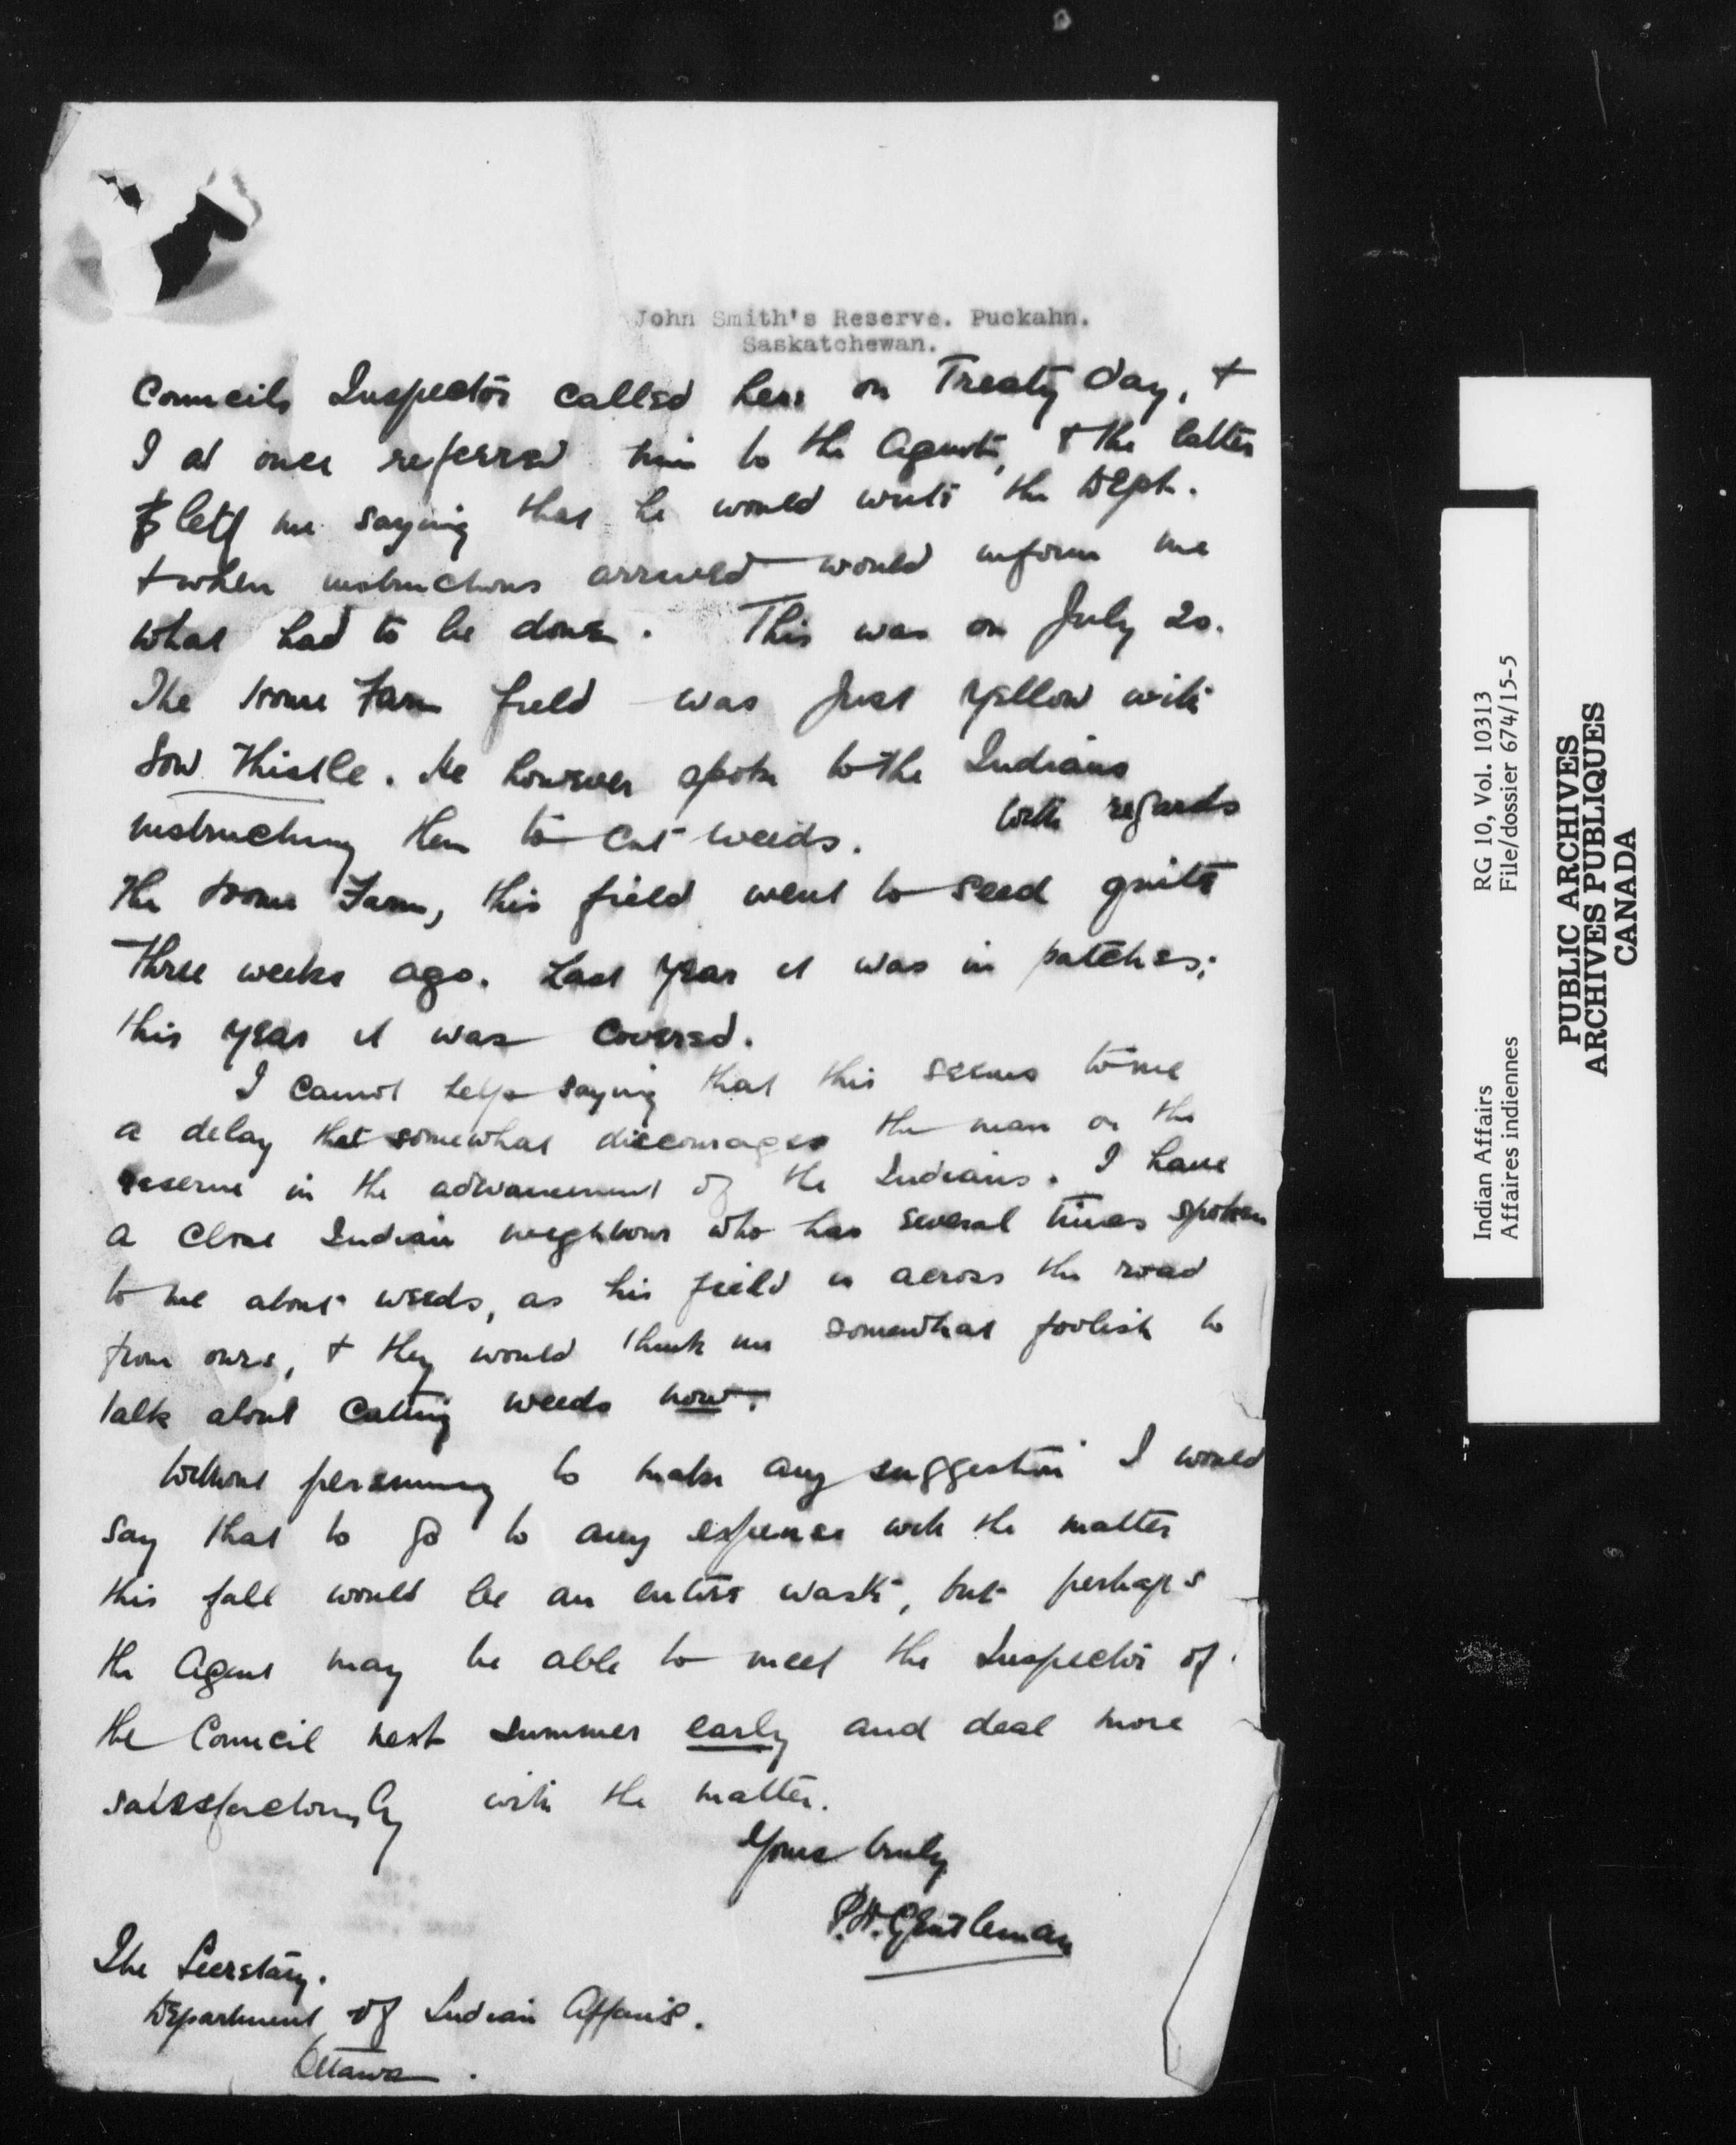 John Smith's Reserve. Puckahn.
Saskatchewan.
Councils Inspector called here on Treaty Day, +
I at once referred him to the Agent, & the latter
left me saying that he would write the Dept.
+ when instructions arrived would inform me
what had to be done. This was on July 20.
The Home Farm field was just yellow with
Sow Thistle. He however spoke to the Indians
instructing them to cut weeds. With regards
the Home Farm, this field went to seed quite
three weeks ago. Last year it was in patches;
this year it was covered.
I cannot help saying that this seems to me
a delay that somewhat discourages the man on the
reserve in the advancement of the Indians. I have
a close Indian neighbour who has several times spoken
to me about weeds, as his field is across the road
from ours, + they would think me somewhat foolish to
talk about cutting weeds now.
Without presuming to make any suggestion I would
say that to go to any expense with the matter
this fall would be an entire waste, but perhaps
the Agent may be able to meet the Inspector of
the Council next summer early and deal more
satisfactorily with the matter.
Yours truly
P.H. Gentleman
The Secretary.
Department of Indian Affairs.
Ottawa.
Indian Affairs RG 10, Vol. 10313
Affaires indiennes File/dossier 674/15-5
PUBLIC ARCHIVES
ARCHIVES PUBLIQUES
CANADA